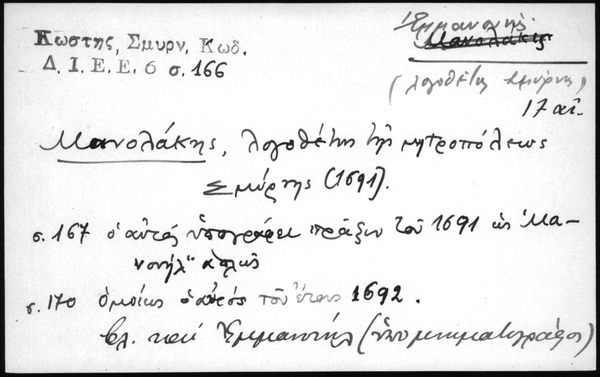 Κωστης, Σμυρν. Κωδ.
Δ. Ι. Ε. Ε. 6 σ. 166
Ἐμμανουὴλ
Μανολάκης
(λογοθέτης Σμύρνης)
17 αἰ.
Μανολάκης, λογοθέτης τῆς μητροπόλεως
Σμύρνης (1691).
σ. 167 ὁ αὐτός ὑπογράφει πρᾶξιν τοῦ 1691 ὡς "Μα-
νουήλ" ἁπλῶς
σ. 170 ὁμοίως ὁ αὐτός τοῦ ἔτους 1692.
βλ. καὶ Ἐμμανουήλ (ὑπομνηματογράφος)